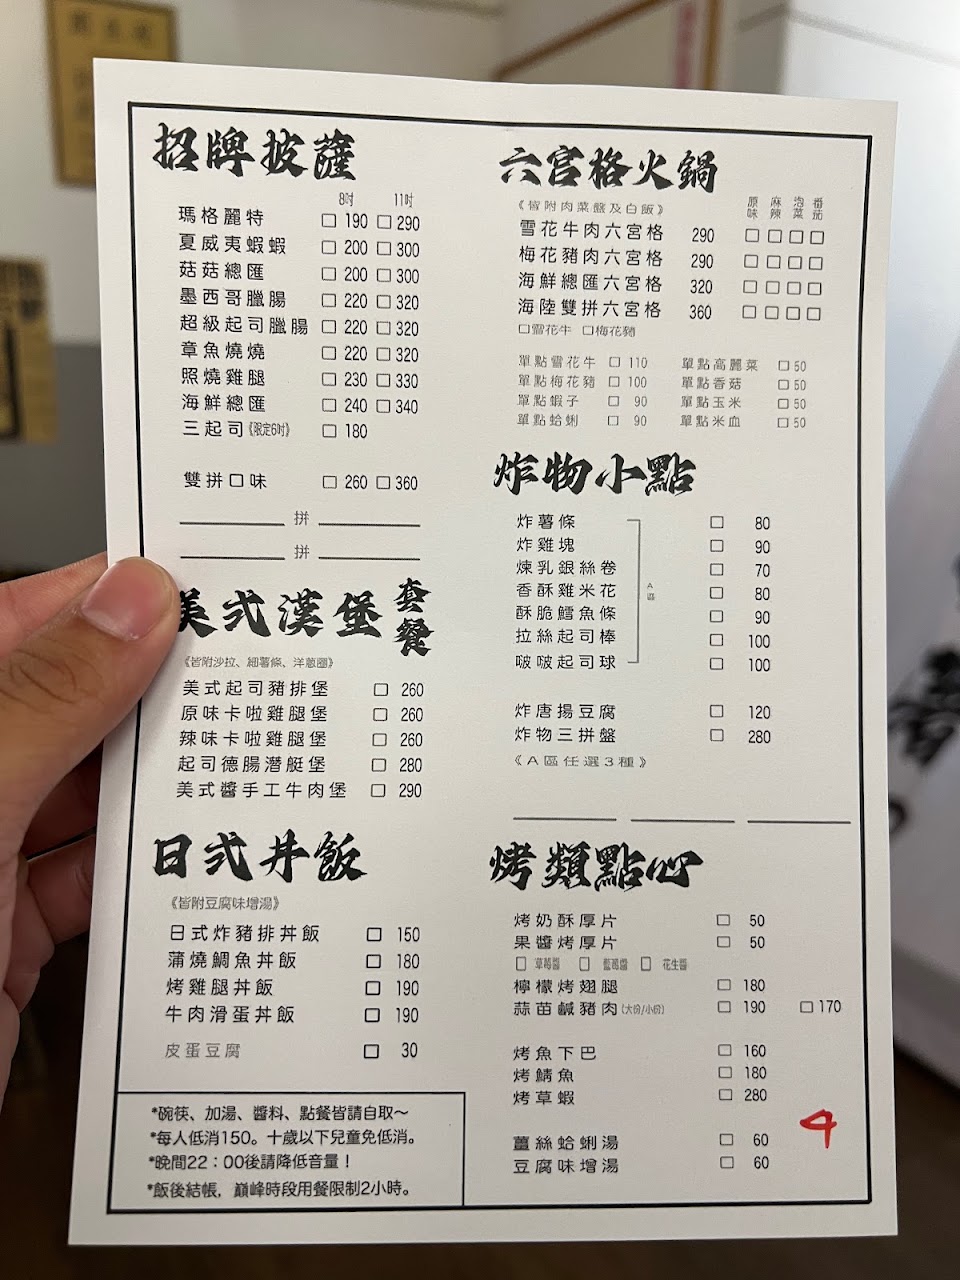 招牌披薩
8吋 11吋
瑪格麗特 □ 190 □ 290
夏威夷蝦蝦 □ 200 □ 300
菇菇總匯 □ 200 □ 300
墨西哥臘腸 □ 220 □ 320
超級起司臘腸 □ 220 □ 320
章魚燒燒 □ 220 □ 320
照燒雞腿 □ 230 □ 330
海鮮總匯 □ 240 □ 340
三起司《限定6吋》 □ 180
雙拼口味 □ 260 □ 360
拼
拼
美式漢堡套餐
《皆附沙拉、細薯條、洋蔥圈》
美式起司豬排堡 □ 260
原味卡啦雞腿堡 □ 260
辣味卡啦雞腿堡 □ 260
起司德腸潛艇堡 □ 280
美式醬手工牛肉堡 □ 290
日式丼飯
《皆附豆腐味增湯》
日式炸豬排丼飯 □ 150
蒲燒鯛魚丼飯 □ 180
烤雞腿丼飯 □ 190
牛肉滑蛋丼飯 □ 190
皮蛋豆腐 □ 30
*碗筷、加湯、醬料、點餐皆請自取～
*每人低消150。十歲以下兒童免低消。
*晚間22：00後請降低音量！
*飯後結帳，巔峰時段用餐限制2小時。
六宮格火鍋
《皆附肉菜盤及白飯》 原味 麻辣 泡菜 番茄
雪花牛肉六宮格 290 □ □ □ □
梅花豬肉六宮格 290 □ □ □ □
海鮮總匯六宮格 320 □ □ □ □
海陸雙拼六宮格 360 □ □ □ □
□雪花牛 □梅花豬
單點雪花牛 □ 110 單點高麗菜 □ 50
單點梅花豬 □ 100 單點香菇 □ 50
單點蝦子 □ 90 單點玉米 □ 50
單點蛤蜊 □ 90 單點米血 □ 50
炸物小點
炸薯條 □ 80
炸雞塊 □ 90
煉乳銀絲卷 □ 70
香酥雞米花 □ 80
A區
酥脆鱈魚條 □ 90
拉絲起司棒 □ 100
啵啵起司球 □ 100
炸唐揚豆腐 □ 120
炸物三拼盤 □ 280
《A區任選3種》
烤類點心
烤奶酥厚片 □ 50
果醬烤厚片 □ 50
□ 草莓醬 □ 藍莓醬 □ 花生醬
檸檬烤翅腿 □ 180
蒜苗鹹豬肉(大份/小份) □ 190 □ 170
烤魚下巴 □ 160
烤鯖魚 □ 180
烤草蝦 □ 280
4
薑絲蛤蜊湯 □ 60
豆腐味增湯 □ 60